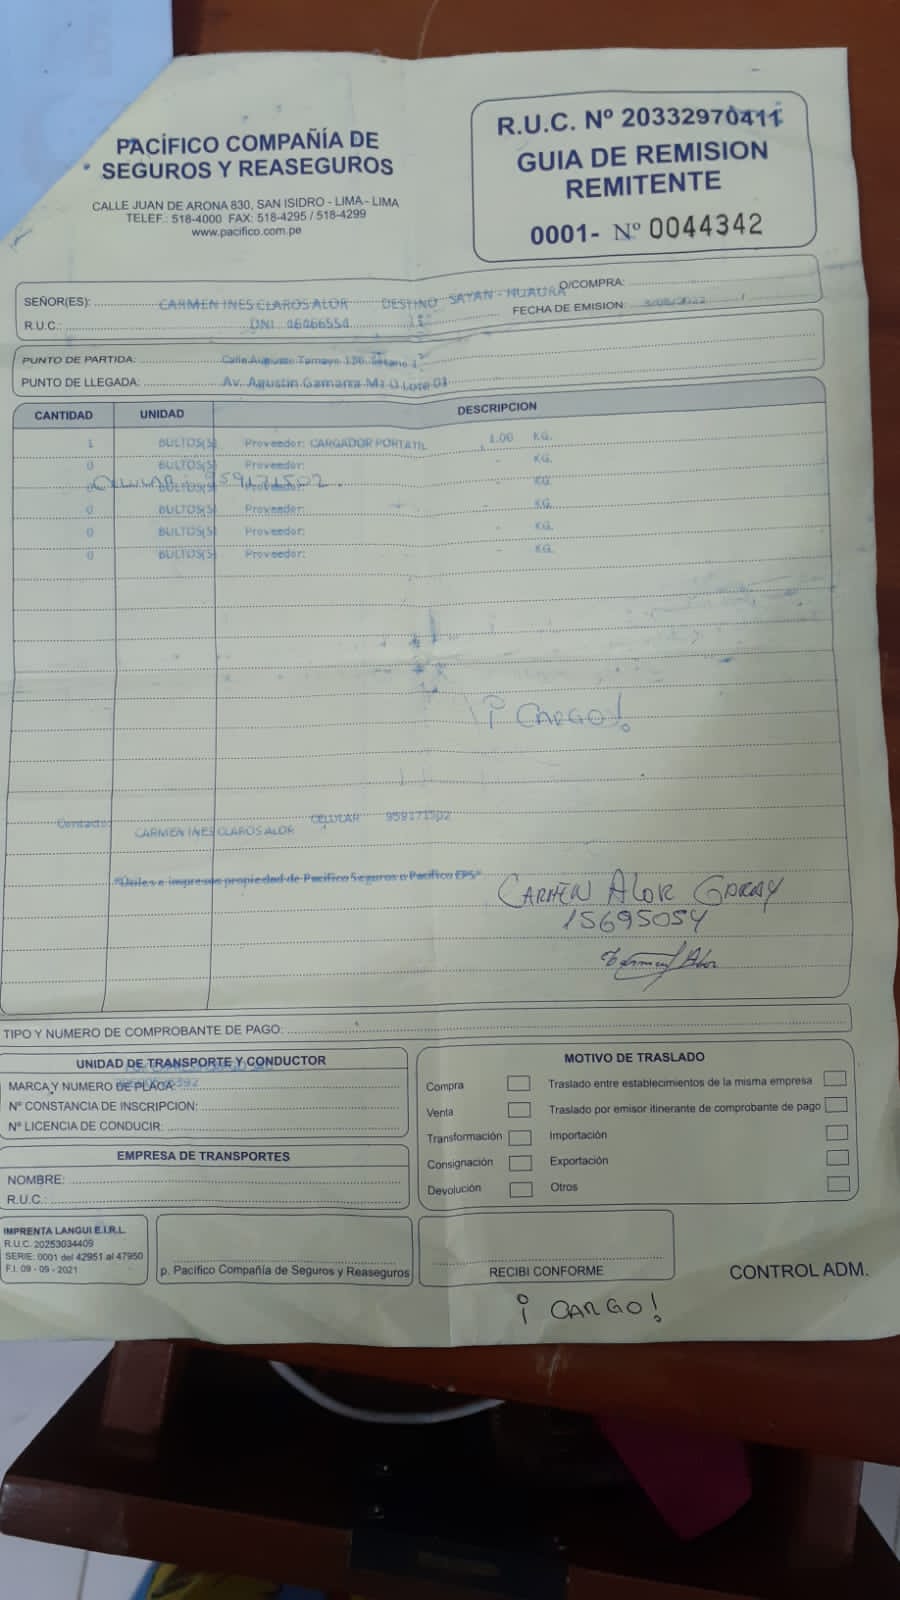 PACÍFICO COMPAÑÍA DE
SEGUROS Y REASEGUROS
CALLE JUAN DE ARONA 830, SAN ISIDRO - LIMA - LIMA
TELEF.: 518-4000 FAX: 518-4295 / 518-4299
www.pacifico.com.pe
R.U.C. Nº 20332970411
GUIA DE REMISION
REMITENTE
0001- Nº 0044342
SEÑOR(ES): CARMEN INES CLAROS ALOR DESTINO SAYAN - HUAURA O/COMPRA:
R.U.C.: DNI FECHA DE EMISION:
PUNTO DE PARTIDA: Calle Augusto Tamayo
PUNTO DE LLEGADA: Av. Agustin Gamarra Mz O Lote 01
CANTIDAD UNIDAD DESCRIPCION
1 BULTOS(S) Proveedor: CARGADOR PORTATIL 1.00 KG.
0 BULTOS(S) Proveedor: - KG.
0 BULTOS(S) Proveedor: - KG.
CELULAR: 959171502.
0 BULTOS(S) Proveedor: - KG.
0 BULTOS(S) Proveedor: - KG.
0 BULTOS(S) Proveedor: - KG.
¡CARGO!
Contacto: CARMEN INES CLAROS ALOR CELULAR 959171502
"Útiles e impresos propiedad de Pacifico Seguros o Pacifico EPS"
CARMEN ALOR GARAY
15695054
TIPO Y NUMERO DE COMPROBANTE DE PAGO:
UNIDAD DE TRANSPORTE Y CONDUCTOR
MARCA Y NUMERO DE PLACA:
Nº CONSTANCIA DE INSCRIPCION:
Nº LICENCIA DE CONDUCIR:
EMPRESA DE TRANSPORTES
NOMBRE:
R.U.C.:
MOTIVO DE TRASLADO
Compra Traslado entre establecimientos de la misma empresa
Venta Traslado por emisor itinerante de comprobante de pago
Transformación Importación
Consignación Exportación
Devolución Otros
IMPRENTA LANGUI E.I.R.L.
R.U.C. 20253034409
SERIE: 0001 del 42951 al 47950
F.I. 09 - 09 - 2021
p. Pacífico Compañía de Seguros y Reaseguros
RECIBI CONFORME
CONTROL ADM.
¡CARGO!